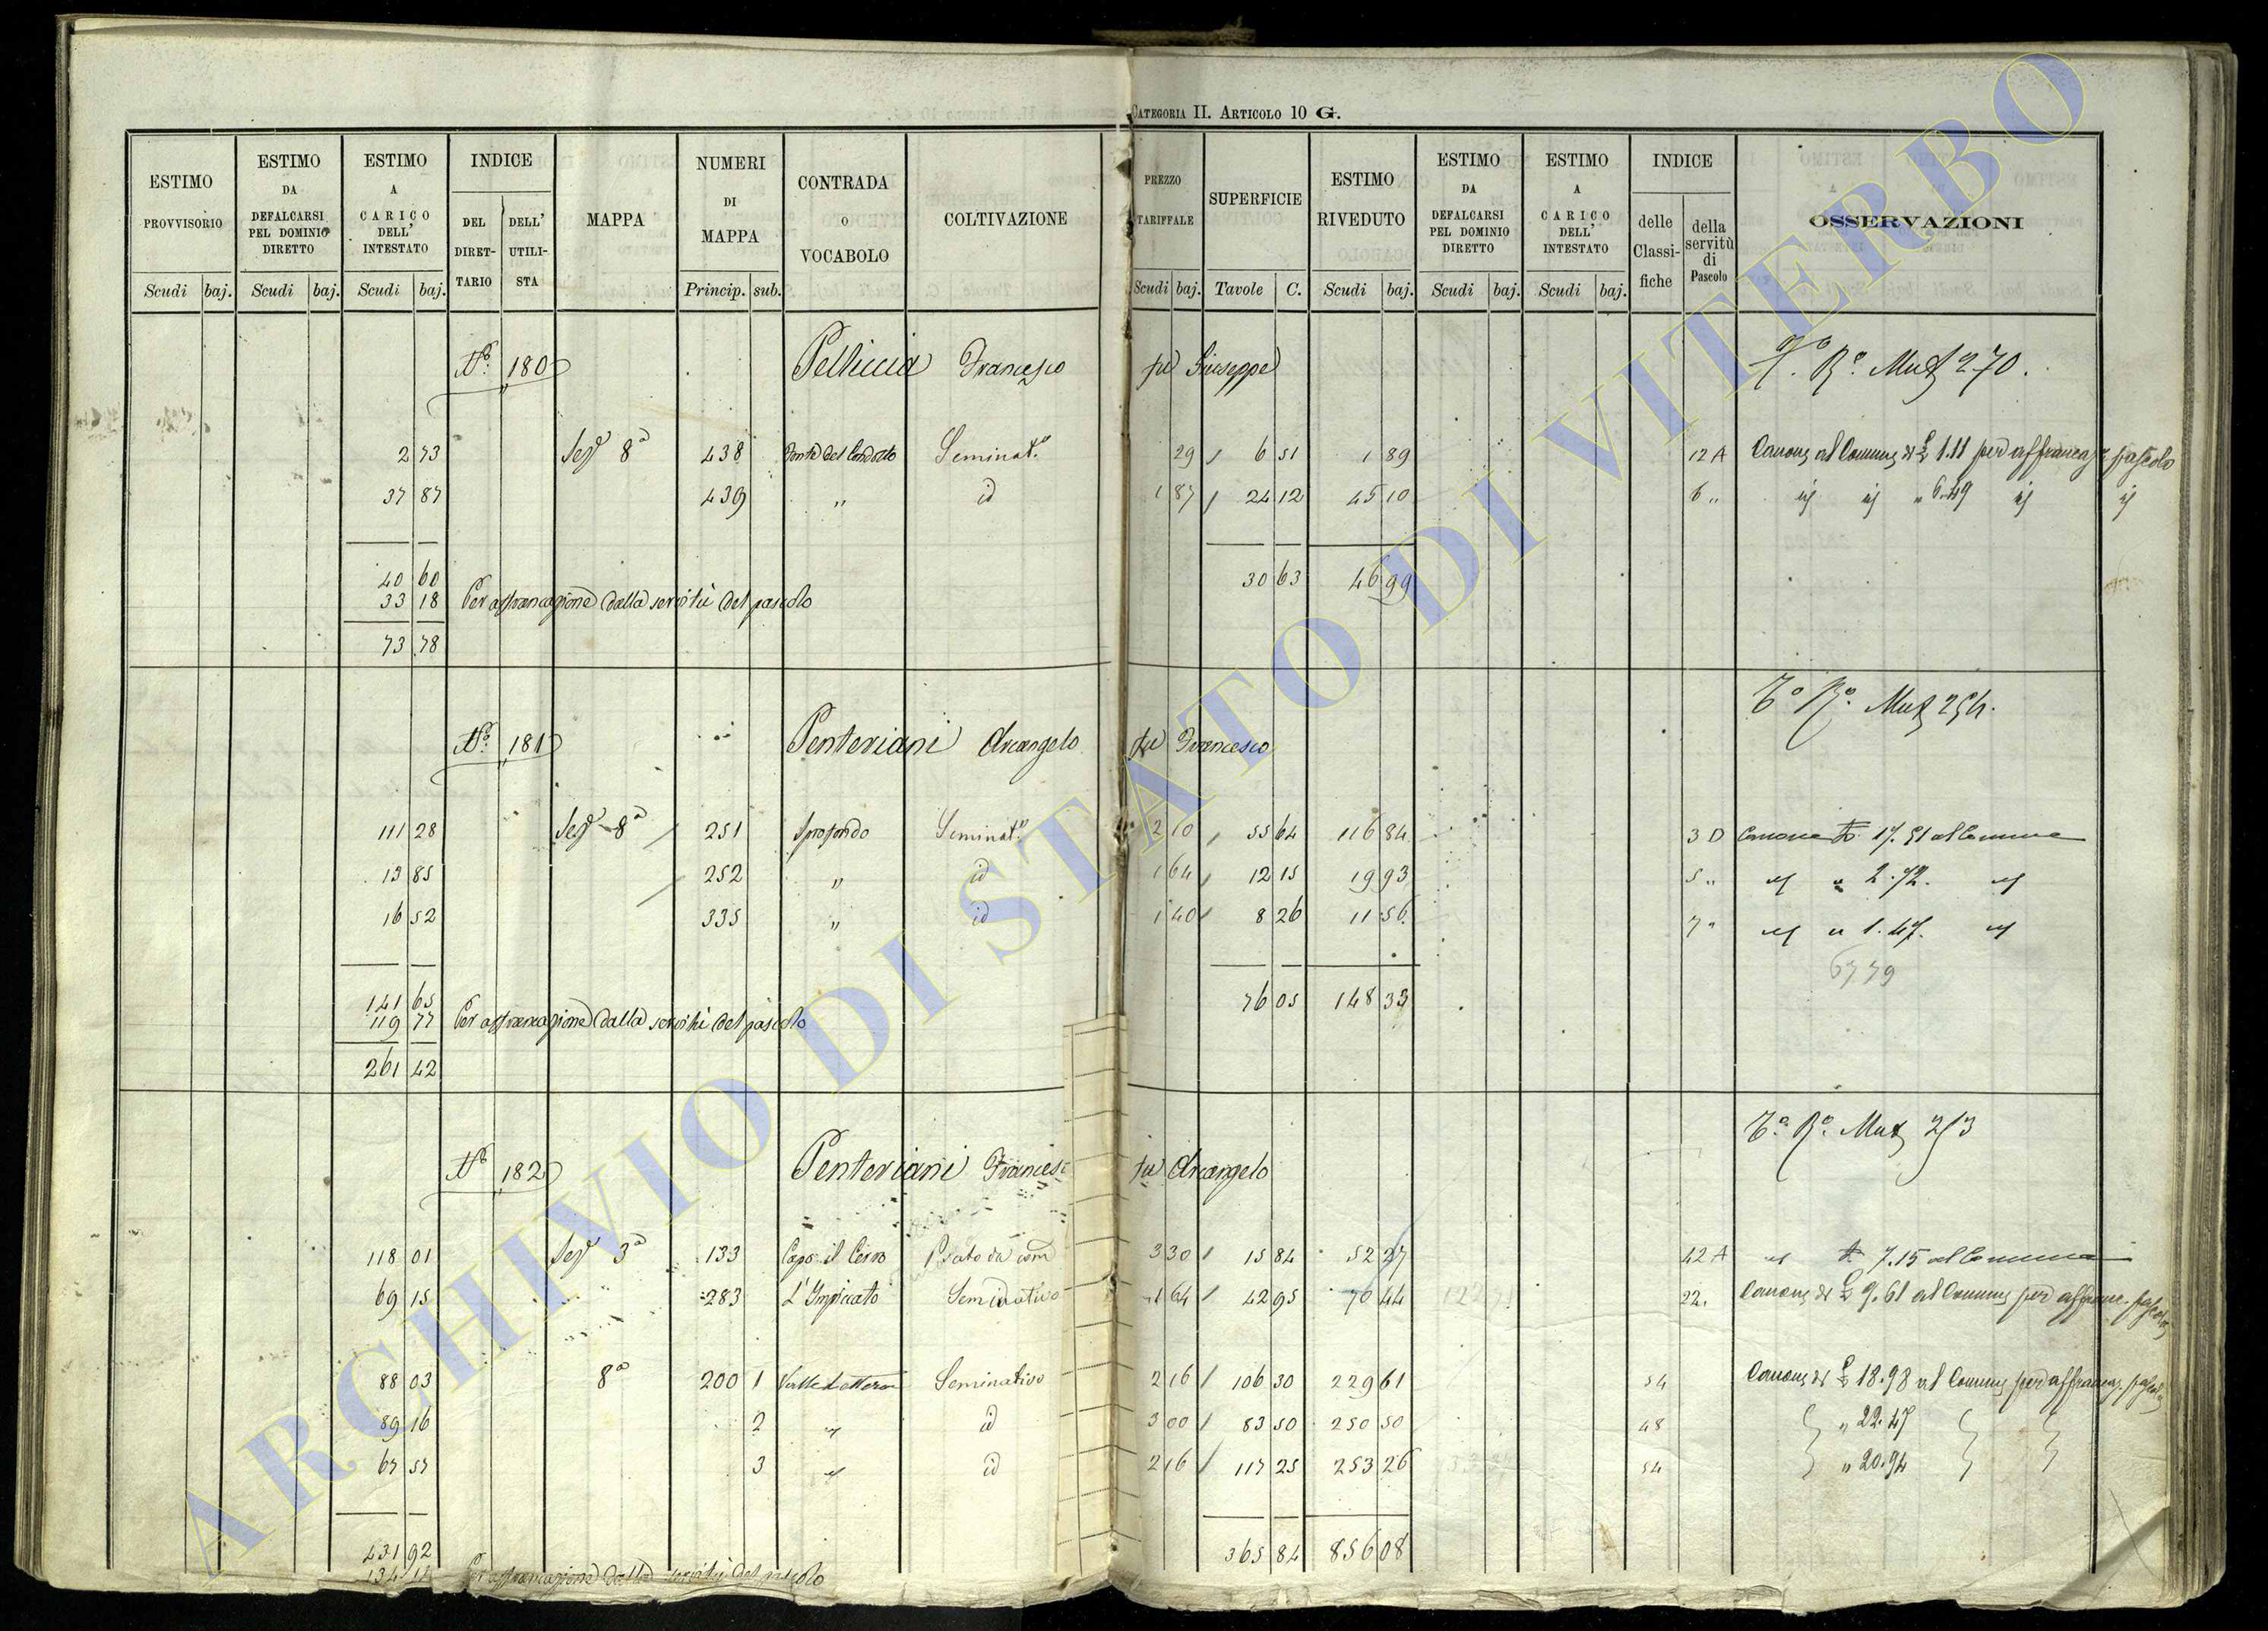 CATEGORIA II. ARTICOLO 10 G.
ESTIMO PROVVISORIO Scudi baj.
ESTIMO DA DEFALCARSI PEL DOMINIO DIRETTO Scudi baj.
ESTIMO A CARICO DELL' INTESTATO Scudi baj.
INDICE DEL DIRET-TARIO DELL' UTILI-STA
MAPPA
NUMERI DI MAPPA Princip. sub.
CONTRADA O VOCABOLO
COLTIVAZIONE
PREZZO TARIFFALE Scudi baj.
SUPERFICIE Tavole C.
ESTIMO RIVEDUTO Scudi baj.
ESTIMO DA DEFALCARSI PEL DOMINIO DIRETTO Scudi baj.
ESTIMO A CARICO DELL' INTESTATO Scudi baj.
INDICE delle Classi-fiche della servitù di Pascolo
OSSERVAZIONI
No. 180 Pelliccia Francesco fu Giuseppe Mut 270.
2 73 Sez 8a 438 Seminat.o 29 6 51 1 89 12 A Canone al Comune di £ 1.11 per affrancaz. pascolo
37 87 439 " id 1 87 24 12 45 10 6 " id id " 6.49 id id
40 60 30 63 46 99
33 18 Per affrancazione dalla servitù del pascolo
73 78
No. 181 Penteriani Arcangelo fu Francesco Mut
111 28 Sez 8a 251 Sprofondo Seminat.o 2 10 55 64 116 84 3 D Canone 17.51 al Comune
13 85 252 " id 1 64 12 15 19 93 5 " id " 2.72. id
16 52 335 " id 1 40 8 26 11 56 7 " id " 1.47. id
6779
141 65 76 05 148 33
119 77 Per affrancazione dalla servitù del pascolo
261 42
No. 182 Penteriani Francesc fu Arcangelo Mut
118 01 Sez 3a 133 Capo il Cerro Prato da 3 30 15 84 52 27 42 A id 7.15 al Comune
69 15 " 283 L'Impiccato Seminativo 1 64 42 95 70 44 22. Canone di £ 9.61 al Comune per affranc. pascolo
88 03 8a 200 1 Seminativo 2 16 106 30 229 61 54 Canone di £ 18.98 al Comune per affrancaz. pascolo
89 16 2 " id 3 00 83 50 250 50 48 " 22.47
67 57 3 " id 2 16 117 25 253 26 54 " 20.94
431 92 365 84 856 08
Per affrancazione dalla servitù del pascolo
ARCHIVIO DI STATO DI VITERBO